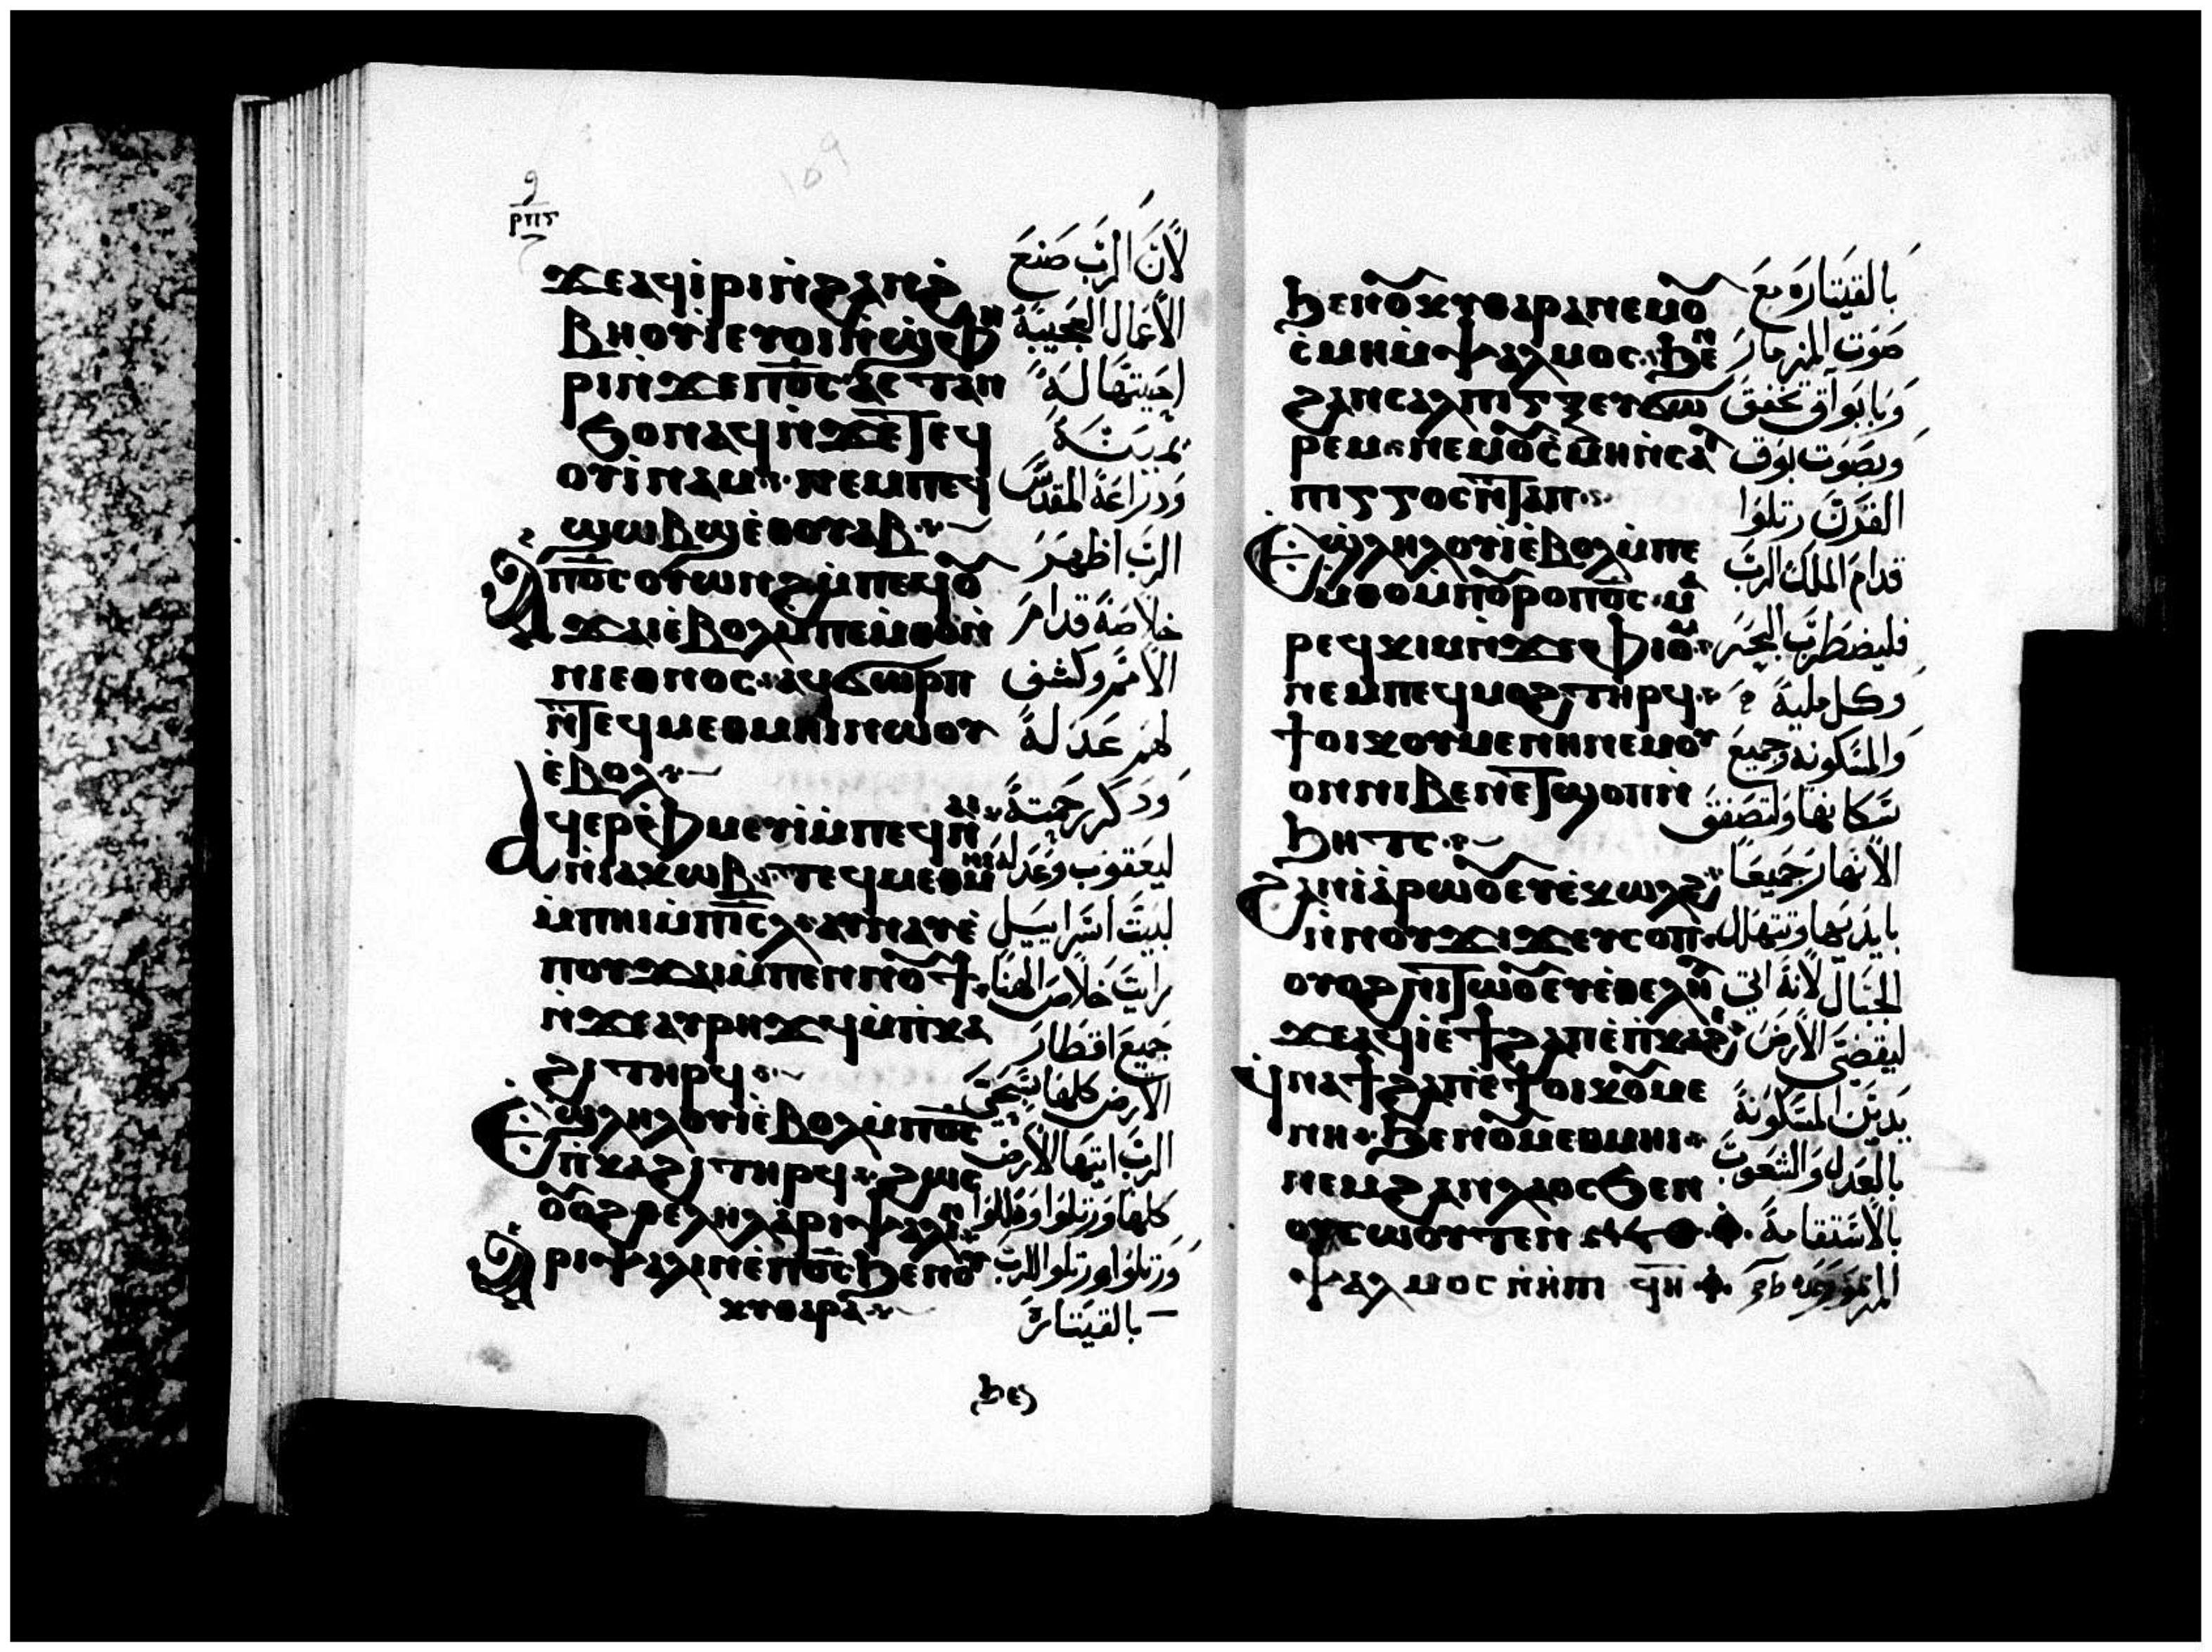 ⲣⲡⲋ
ϫⲉⲁϥⲓ̇ⲣⲓⲛ̇ϩⲁⲛϩ̇
ⲃⲏⲟⲩⲓ̇ⲉⲩⲟⲓⲛ̇ϣ̇ⲫⲏ
ⲣⲓⲛ̇ϫⲉⲡⲟ̅ⲥ̅ ⲁⲥⲧⲁⲛ
ϧⲟⲛⲁϥⲛ̇ϫⲉⲧⲉϥ
ⲟⲩⲓ̇ⲛⲁⲙ ⲛⲉⲙⲡⲉϥ
ϣⲱⲃϣⲉ̇ⲑⲟⲩⲁⲃ
Ⲁⲡⲟ̅ⲥ̅ⲟⲩⲱⲛϩⲙ̇ⲡⲉϥⲟ
ϫⲁⲓⲉ̇ⲃⲟⲗⲙ̇ⲡⲉⲙ̇ⲑⲟⲛ̇
ⲛⲓⲉⲑⲛⲟⲥ ⲁϥϭⲱⲣⲡ
ⲛ̇ⲧⲉϥⲙⲉⲑⲙⲏⲓⲛⲱⲟⲩ
ⲉ̇ⲃⲟⲗ
Ⲁϥⲉⲣⲫ̇ⲙⲉⲩⲓ̇ⲙ̇ⲡⲉϥⲛⲁⲓ
ⲛ̇ⲓⲁⲕⲱⲃ ⲧⲉϥⲙⲉⲑⲙⲏⲓ
ⲙ̇ⲡⲏⲓⲙ̇ⲡⲓ̅ⲥ̅ⲗ ⲁⲩⲛⲁⲩⲉ̇
ⲡⲟⲩϫⲁⲓⲙ̇ⲡⲉⲛⲛⲟϯ
ⲛ̇ϫⲉⲁⲩⲣⲏϫϥⲙ̇ⲡ̇ⲕⲁ
ϩⲓⲧⲏⲣϥ
Ⲉϣⲗⲏⲗⲟⲩⲓⲉ̇ⲃⲟⲗⲙ̇ⲡⲟ̅ⲥ̅
ⲡ̇ⲕⲁϩⲓⲧⲏⲣϥ ϩⲱⲥ
ⲟⲟϩⲑⲉⲗⲏⲗⲁ̇ⲣⲓⲯⲁⲗⲓⲛ
Ⲁⲣⲓⲯⲁⲗⲓⲛⲉ̇ⲡⲟ̅ⲥ̅ϧⲉⲛⲟⲩ
ⲕⲩⲑⲁⲣⲁ
لأن الرب صنع
الأعمال العجيبة
احييتها له
يمينه
ودراعه المقدس
الرب اظهر
خلاصه قدام
الأمم وكشف
لهم عدله
ودكر رحمته
ليعقوب وعدله
لبيت اسراييل
رايت خلاص الهنا
جميع اقطار
الارض كلها
الرب ايتها الارض
كلها ورتلوا وهللوا
ورتلوا ورتلوا للرب
بالقيتاره
ϧⲉ
ϧⲉⲛⲟⲕⲩⲑⲁⲣⲁⲛⲉⲙⲟ
ⲥ̇ⲙⲏⲙ̇ⲯⲁⲗⲙⲟⲥ ϧⲉⲛ
ϩⲁⲛⲥⲁⲗⲡⲓⲅⲝⲉⲩϭⲱ
ⲣⲉⲙ ⲛⲉⲙⲟⲥ̇ⲙⲏⲛ̇ⲥⲁⲗ
ⲡⲓⲅⲅⲟⲥⲛ̇ⲧⲁⲡ
Ⲉϣⲗⲏⲗⲟⲩⲓⲉ̇ⲃⲟⲗⲙ̇ⲡⲉ
ⲙⲑⲟⲙ̇ⲡⲟⲣⲟⲡⲟ̅ⲥ̅ ⲙ
ⲣⲉϥⲕⲓⲙⲛ̇ϫⲉⲫⲓⲟⲙ
ⲛⲉⲙⲡⲉϥⲙⲟϩⲧⲏⲣϥ
ϯⲟⲓⲕⲟⲩⲙⲉⲛⲏⲛⲉⲙⲟⲩ
ⲟⲛⲛⲓⲃⲉⲛⲉⲧϣⲟⲡⲛ̇
ϧⲏⲧⲥ
Ϩⲁⲛⲓⲁ̇ⲣⲱⲟⲉⲩⲉ̇ⲕⲱⲗϩ
ⲛ̇ⲛⲟⲩϫⲓϫⲉⲩⲥⲟⲡ
ⲟⲩⲟϩⲛⲓⲧⲱⲟⲉⲩⲉ̇ⲑⲉⲗⲏⲗ
ϫⲉⲁϥⲓ̇ⲉ̇ϯϩⲁⲡⲉ̇ⲡ̇ⲕⲁϩⲓ
ϥⲛⲁϯϩⲁⲡⲉ̇ϯⲟⲓⲕⲟⲙⲉ
ⲛⲏ ϧⲉⲛⲟⲙⲉⲑⲙⲏⲓ
ⲛⲉⲙϩⲁⲛⲗⲁⲟⲥϧⲉⲛ
ⲟⲩⲥⲱⲟⲩⲧⲉⲛ
ⲯⲁⲗⲙⲟⲥ ϥⲏ
بالقيتاره مع
صوت المزمار
وبابواق تخفق
وبصوت بوق
القرن رتلوا
قدام الملك الرب
فليضطرب البحر
وكل مليه
والمسكونه وجميع
سكانها ولتصفق
الانهار جميعا
بايديها وتتهلل
الجبال لأنه اتي
ليقضي الارض
يدين المسكونة
بالعدل والشعوب
بالاستقامة